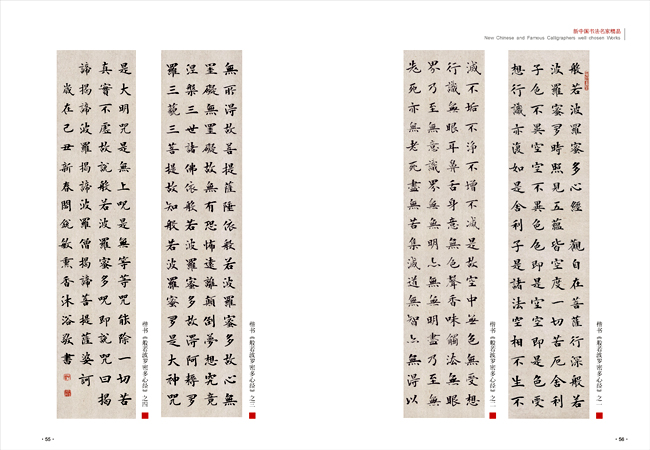 新中国书法名家精品
New Chinese and Famous Calligraphers well-chosen Works
般若波羅蜜多心經 觀自在菩薩行深般若
波羅蜜多時照見五蘊皆空度一切苦厄舍利
子色不異空空不異色色即是空空即是色受
想行識亦復如是舍利子是諸法空相不生不
楷书《般若波罗密多心经》之一
滅不垢不淨不增不減是故空中無色無受想
行識無眼耳鼻舌身意無色聲香味觸法無眼
界乃至無意識界無無明亦無無明盡乃至無
老死亦無老死盡無苦集滅道無智亦無得以
楷书《般若波罗密多心经》之二
無所得故菩提薩埵依般若波羅蜜多故心無
罣礙無罣礙故無有恐怖遠離顛倒夢想究竟
涅槃三世諸佛依般若波羅蜜多故得阿耨多
羅三藐三菩提故知般若波羅蜜多是大神咒
楷书《般若波罗密多心经》之三
是大明咒是無上咒是無等等咒能除一切苦
真實不虛故說般若波羅蜜多咒即說咒曰揭
諦揭諦波羅揭諦波羅僧揭諦菩提薩婆訶
歲在己丑新春閻銳敏熏香沐浴敬書
楷书《般若波罗密多心经》之四
· 55 ·
· 56 ·